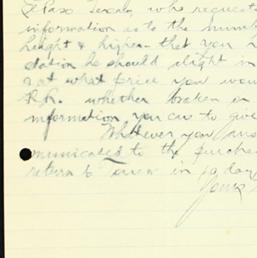 who request
information as to the num
height & higher that you h
dation he should alight in
at what price you wou
R.R. whether broken or
information, you can to give
Whatever you
municated to the purcha
return to in 10 day
Yours